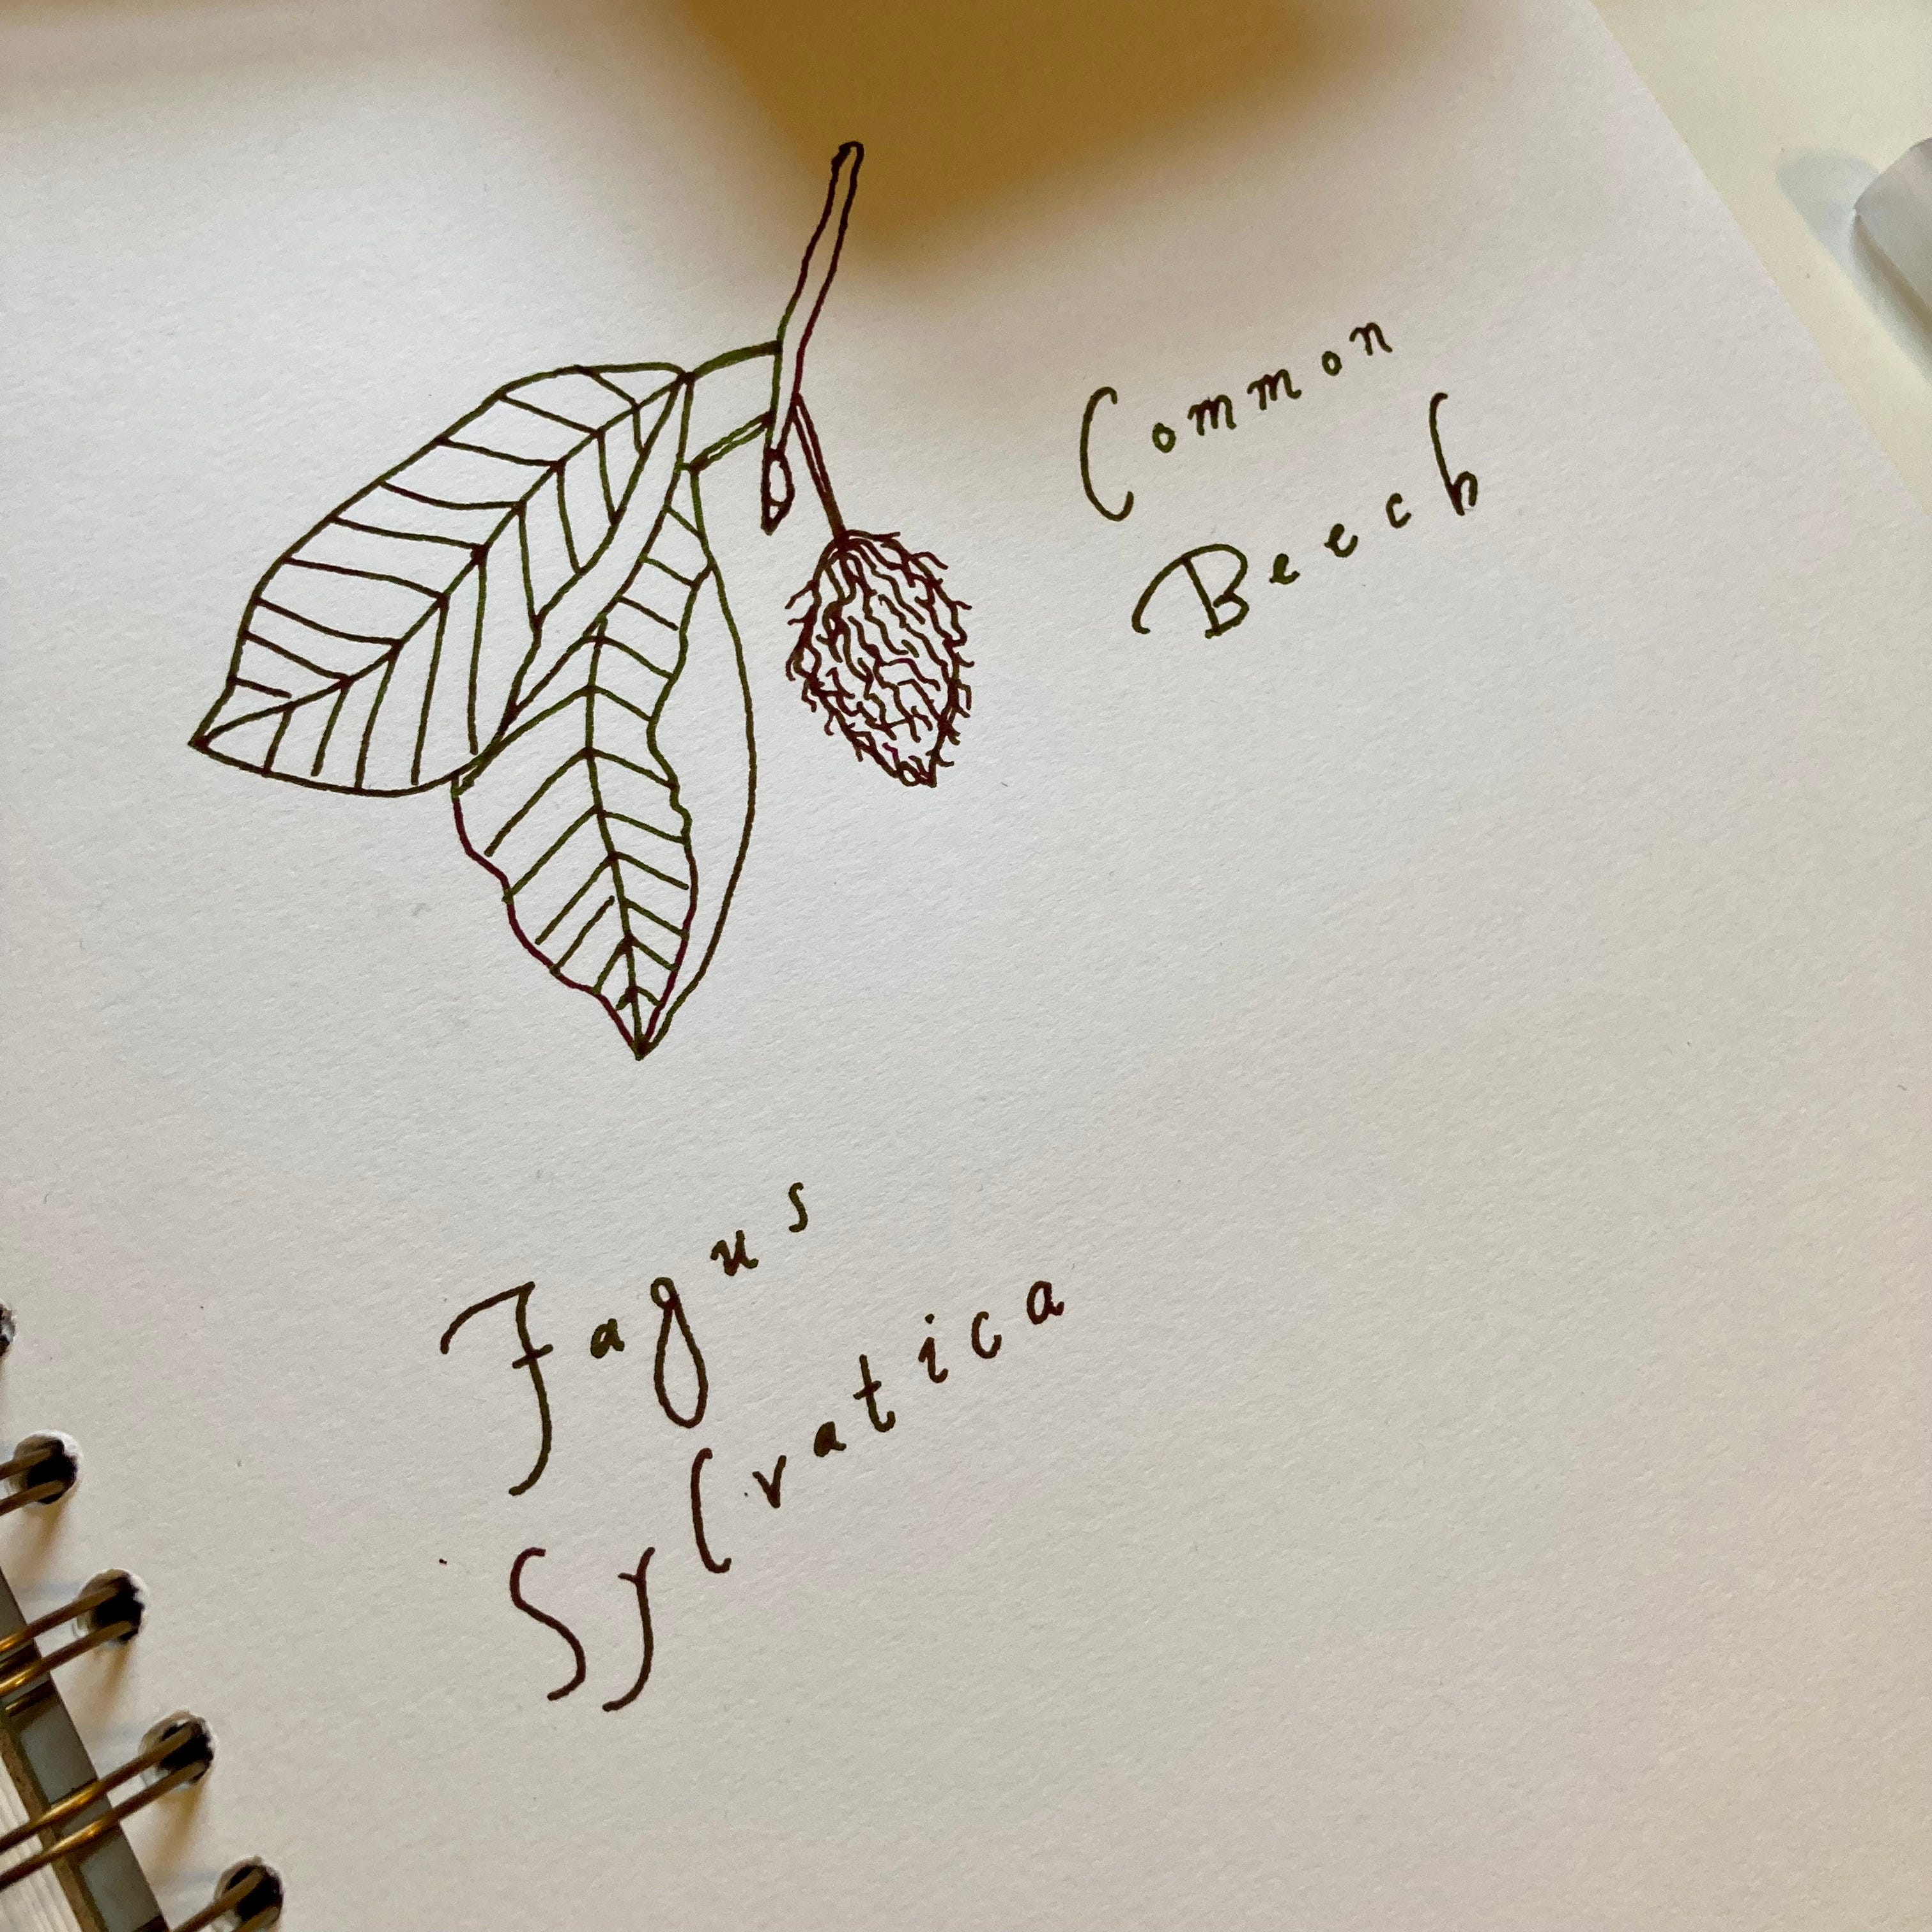 Common
Beech
Fagus
Sylvatica